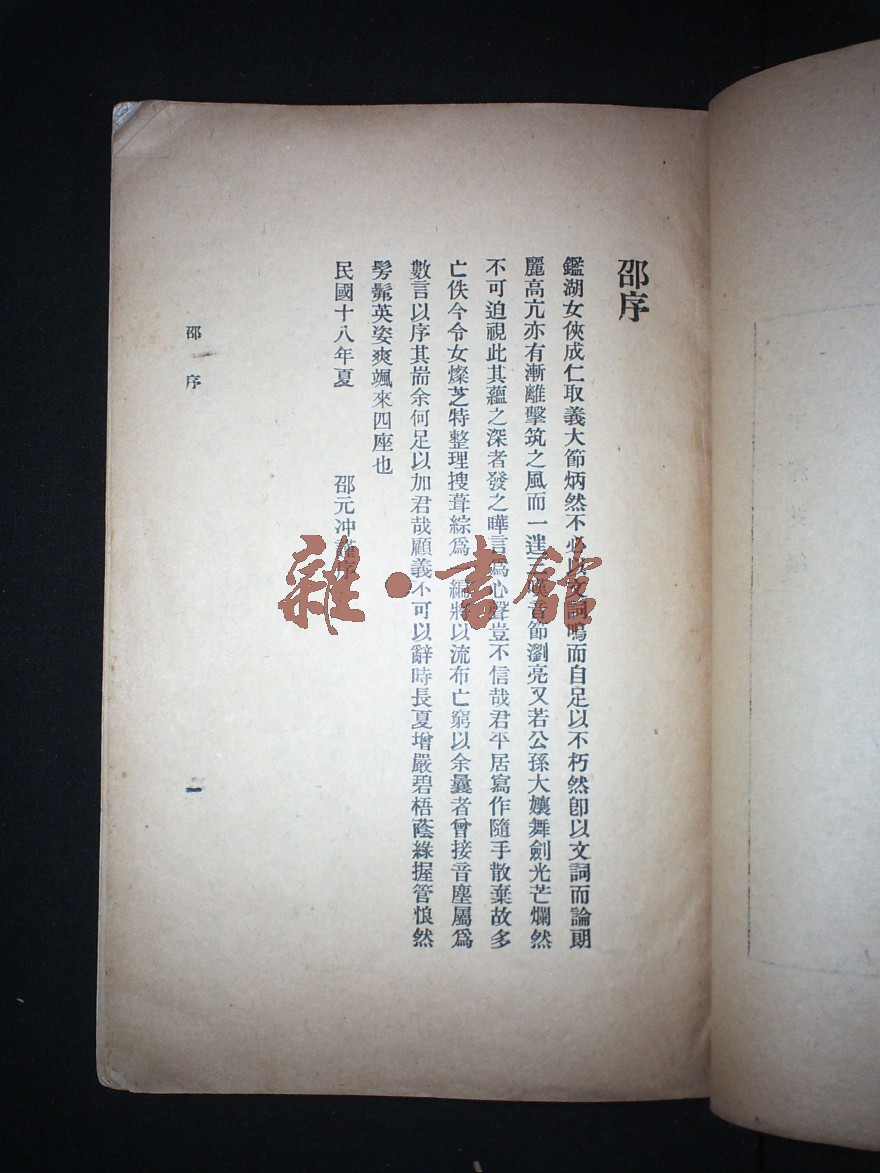 邵序
鑑湖女俠成仁取義大節炳然不必以文詞鳴而自足以不朽然卽以文詞而論朗
麗高亢亦有漸離擊筑之風而一唱三嘆音節瀏亮又若公孫大孃舞劍光芒爛然
不可迫視此其蘊之深者發之曄言爲心聲豈不信哉君平居寫作隨手散棄故多
亡佚今令女燦芝特整理搜葺綜爲一編將以流布亡窮以余曩者曾接音塵屬爲
數言以序其耑余何足以加君哉顧義不可以辭時長夏增嚴碧梧蔭綠握管悢然
髣髴英姿爽颯來四座也
民國十八年夏 邵元冲謹序
邵序
一
雜·書館